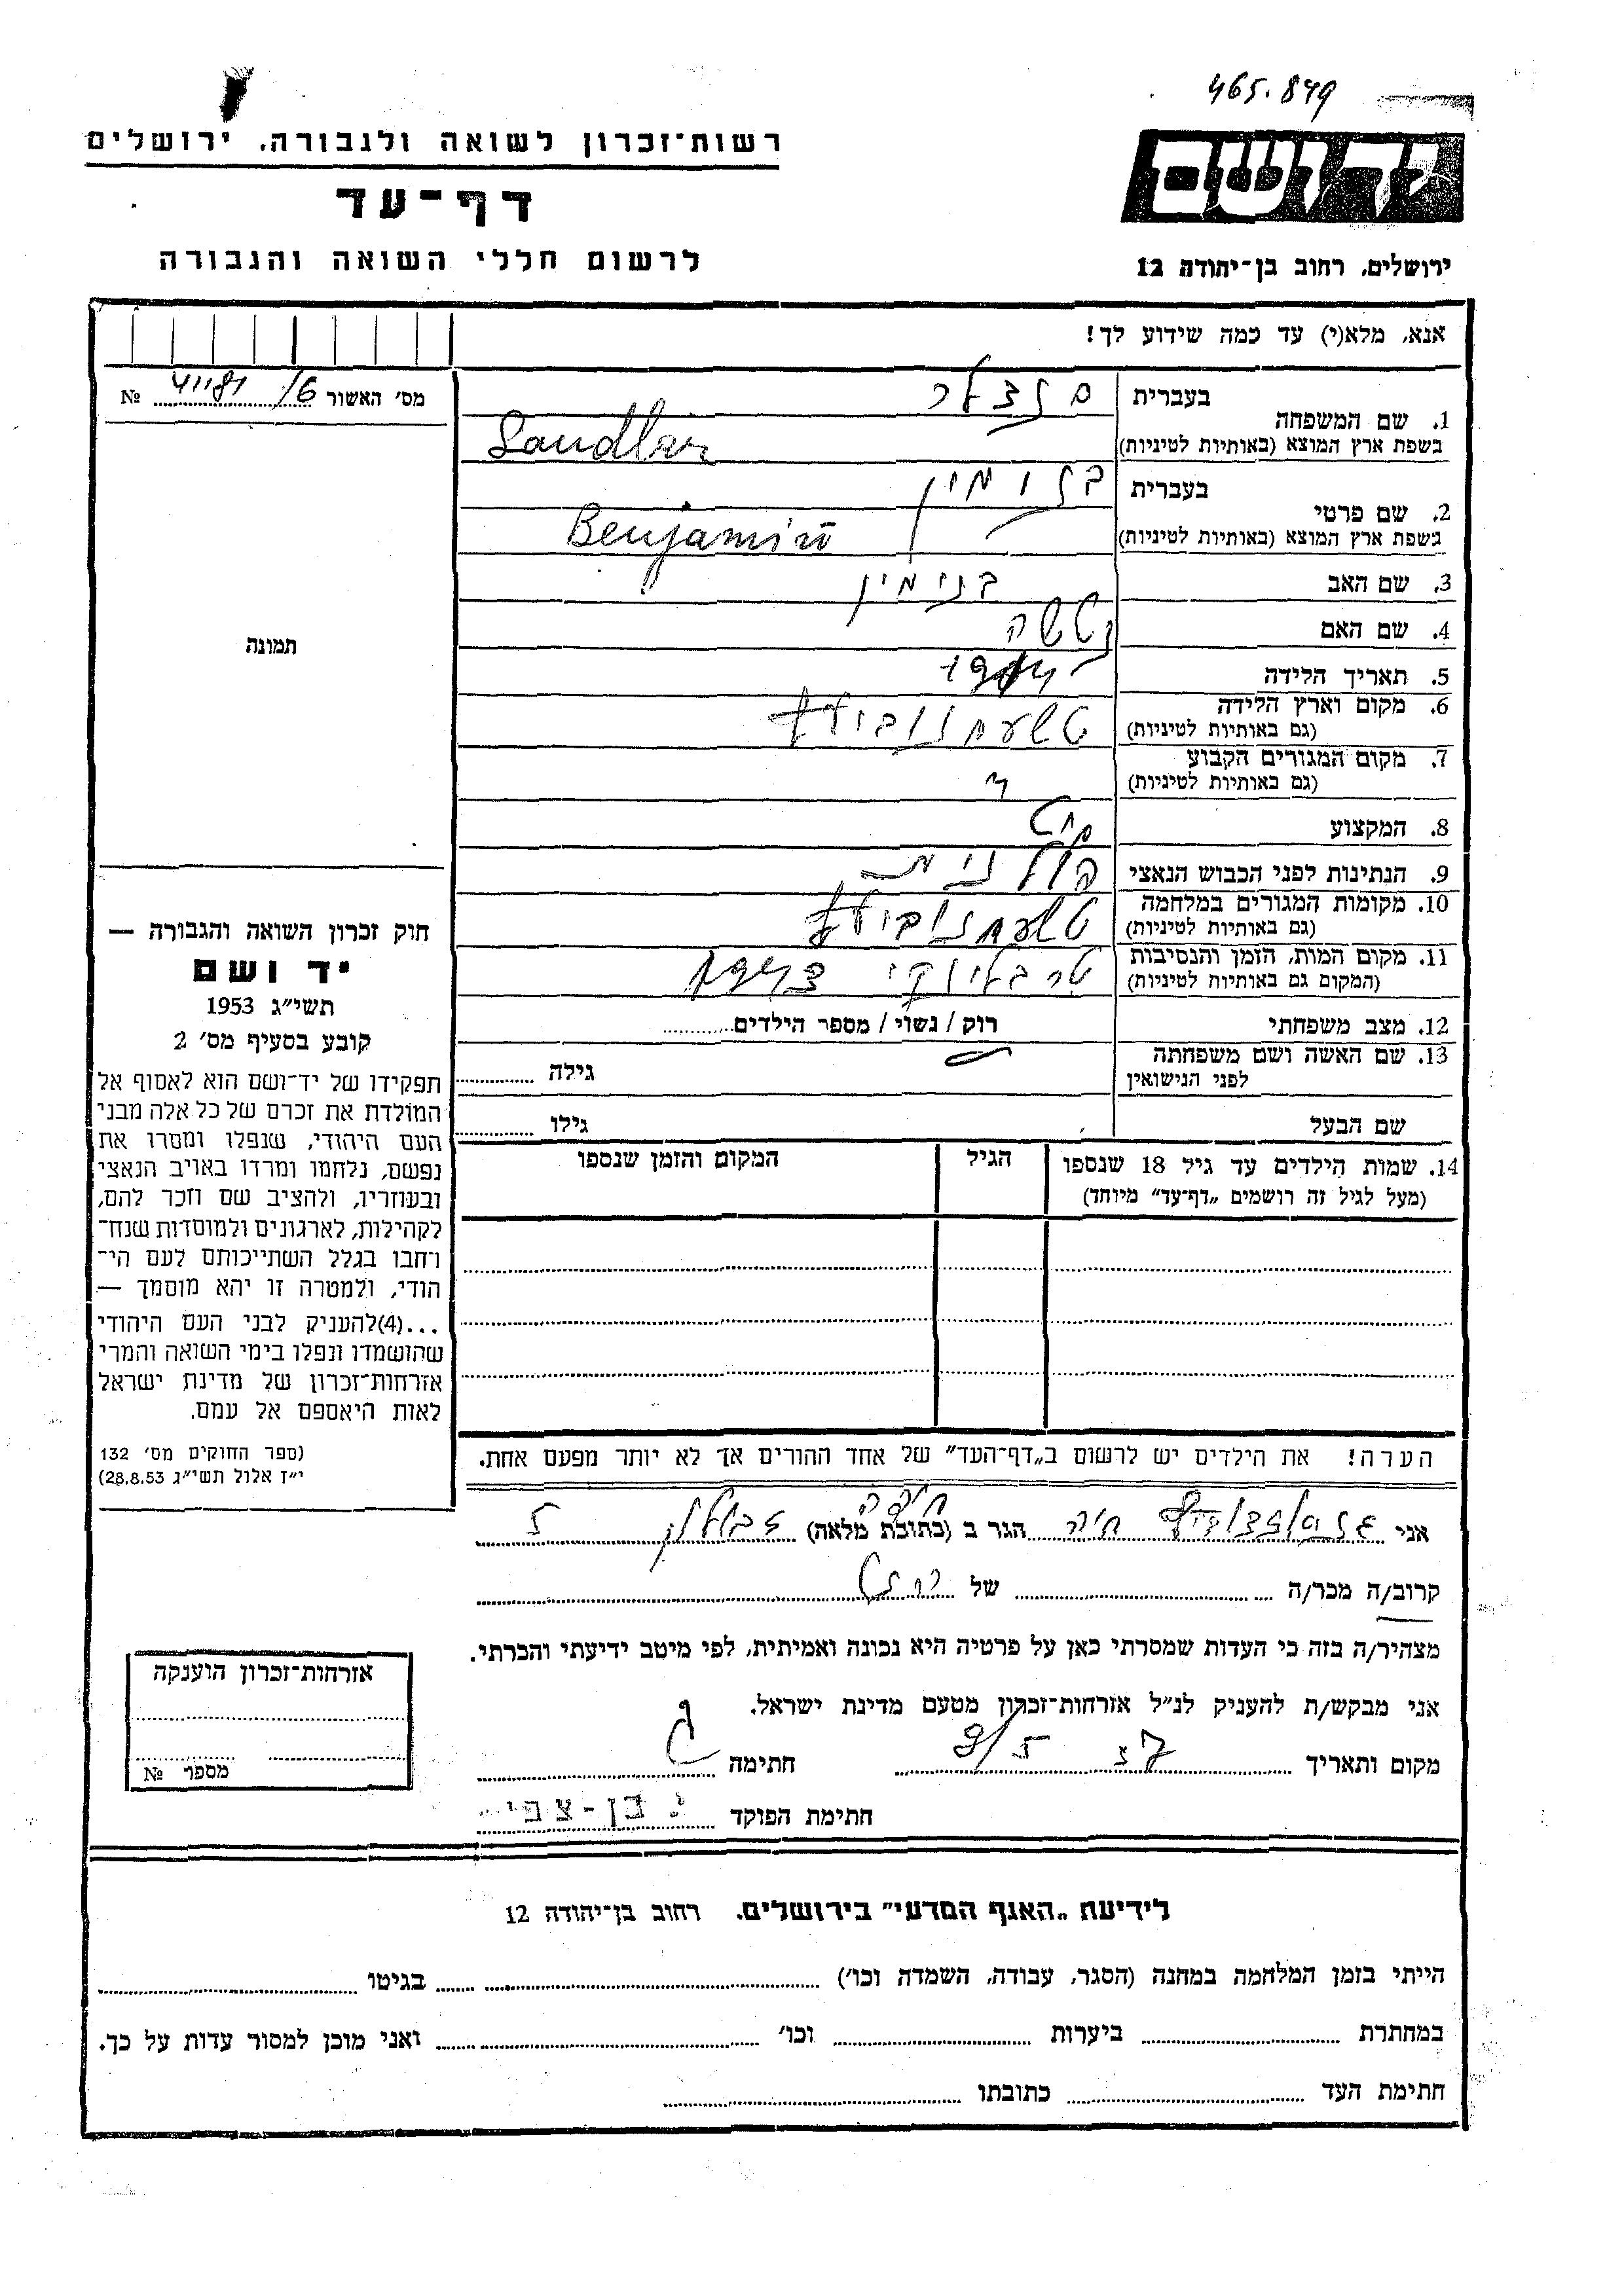 465.849
יד ושם
רשות־זכרון לשואה ולגבורה, ירושלים
דף־עד
לרשום חללי השואה והגבורה
ירושלים, רחוב בן־יהודה 12
אנא, מלא(י) עד כמה שידוע לך!
מס׳ האשור 41181/6 №
תמונה
1. שם המשפחה בעברית סנדלר
בשפת ארץ המוצא (באותיות לטיניות) Sandler
2. שם פרטי בעברית
בשפת ארץ המוצא (באותיות לטיניות) Benjamin
3. שם האב בנימין
4. שם האם
5. תאריך הלידה
6. מקום וארץ הלידה
(גם באותיות לטיניות)
7. מקום המגורים הקבוע
(גם באותיות לטיניות)
8. המקצוע
9. הנתינות לפני הכבוש הנאצי פולנית
10. מקומות המגורים במלחמה
(גם באותיות לטיניות)
11. מקום המות, הזמן והנסיבות
(המקום גם באותיות לטיניות)
12. מצב משפחתי רוק / נשוי / מספר הילדים
13. שם האשה ושם משפחתה
לפני הנישואין גילה
שם הבעל גילו
14. שמות הילדים עד גיל 18 שנספו הגיל המקום והזמן שנספו
(מעל לגיל זה רושמים „דף־עד״ מיוחד)
חוק זכרון השואה והגבורה —
יד ושם
תשי״ג 1953
קובע בסעיף מס׳ 2
תפקידו של יד־ושם הוא לאסוף אל
המולדת את זכרם של כל אלה מבני
העם היהודי, שנפלו ומסרו את
נפשם, נלחמו ומרדו באויב הנאצי
ובעוזריו, ולהציב שם וזכר להם,
לקהילות, לארגונים ולמוסדות שנח־
רחבו בגלל השתייכותם לעם הי־
הודי, ולמטרה זו יהא מוסמך —
...(4)להעניק לבני העם היהודי
שהושמדו ונפלו בימי השואה והמרי
אזרחות־זכרון של מדינת ישראל
לאות היאספם אל עמם.
(ספר החוקים מס׳ 132
י״ז אלול תשי״ג 28.8.53)
הערה! את הילדים יש לרשום ב„דף־העד״ של אחד ההורים אך לא יותר מפעם אחת.
אני חיה הגר ב (כתובת מלאה) חיפה זבולון 5
קרוב/ה מכר/ה של
מצהיר/ה בזה כי העדות שמסרתי כאן על פרטיה היא נכונה ואמיתית, לפי מיטב ידיעתי והכרתי.
אני מבקש/ת להעניק לנ״ל אזרחות־זכרון מטעם מדינת ישראל.
מקום ותאריך חתימה
חתימת הפוקד י. בן-צבי
אזרחות־זכרון הוענקה
מספר №
לידיעת „האגף המדעי״ בירושלים. רחוב בן־יהודה 12
הייתי בזמן המלחמה במחנה (הסגר, עבודה, השמדה וכו׳) בגיטו
במחתרת ביערות וכו׳ ואני מוכן למסור עדות על כך.
חתימת העד כתובתו